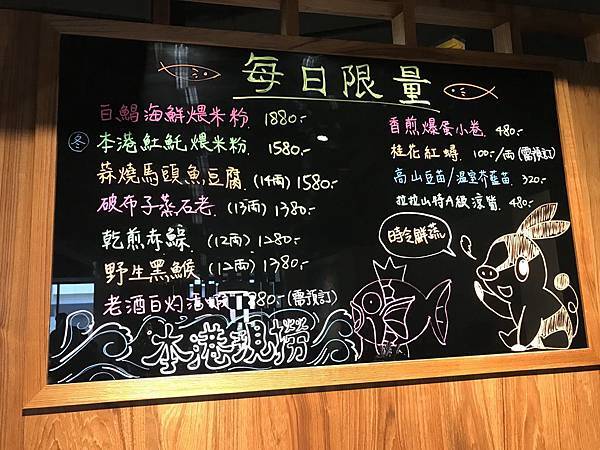 每日限量
白鯧海鮮煨米粉 1880.-
冬 本港魟魠煨米粉 1580.-
蒜燒馬頭魚豆腐 (14兩) 1580.-
破布子蒸石老 (13兩) 1380.-
乾煎赤鯮 (12兩) 1280.-
野生黑喉 (12兩) 1380.-
老酒白灼活蝦 380.-(需預訂)
本港現撈
香煎爆蛋小卷 480.-
桂花紅蟳 100/兩(需預訂)
高山豆苗/溫室芥藍苗 320.-
拉拉山特A級涼筍 480.-
時令鮮蔬